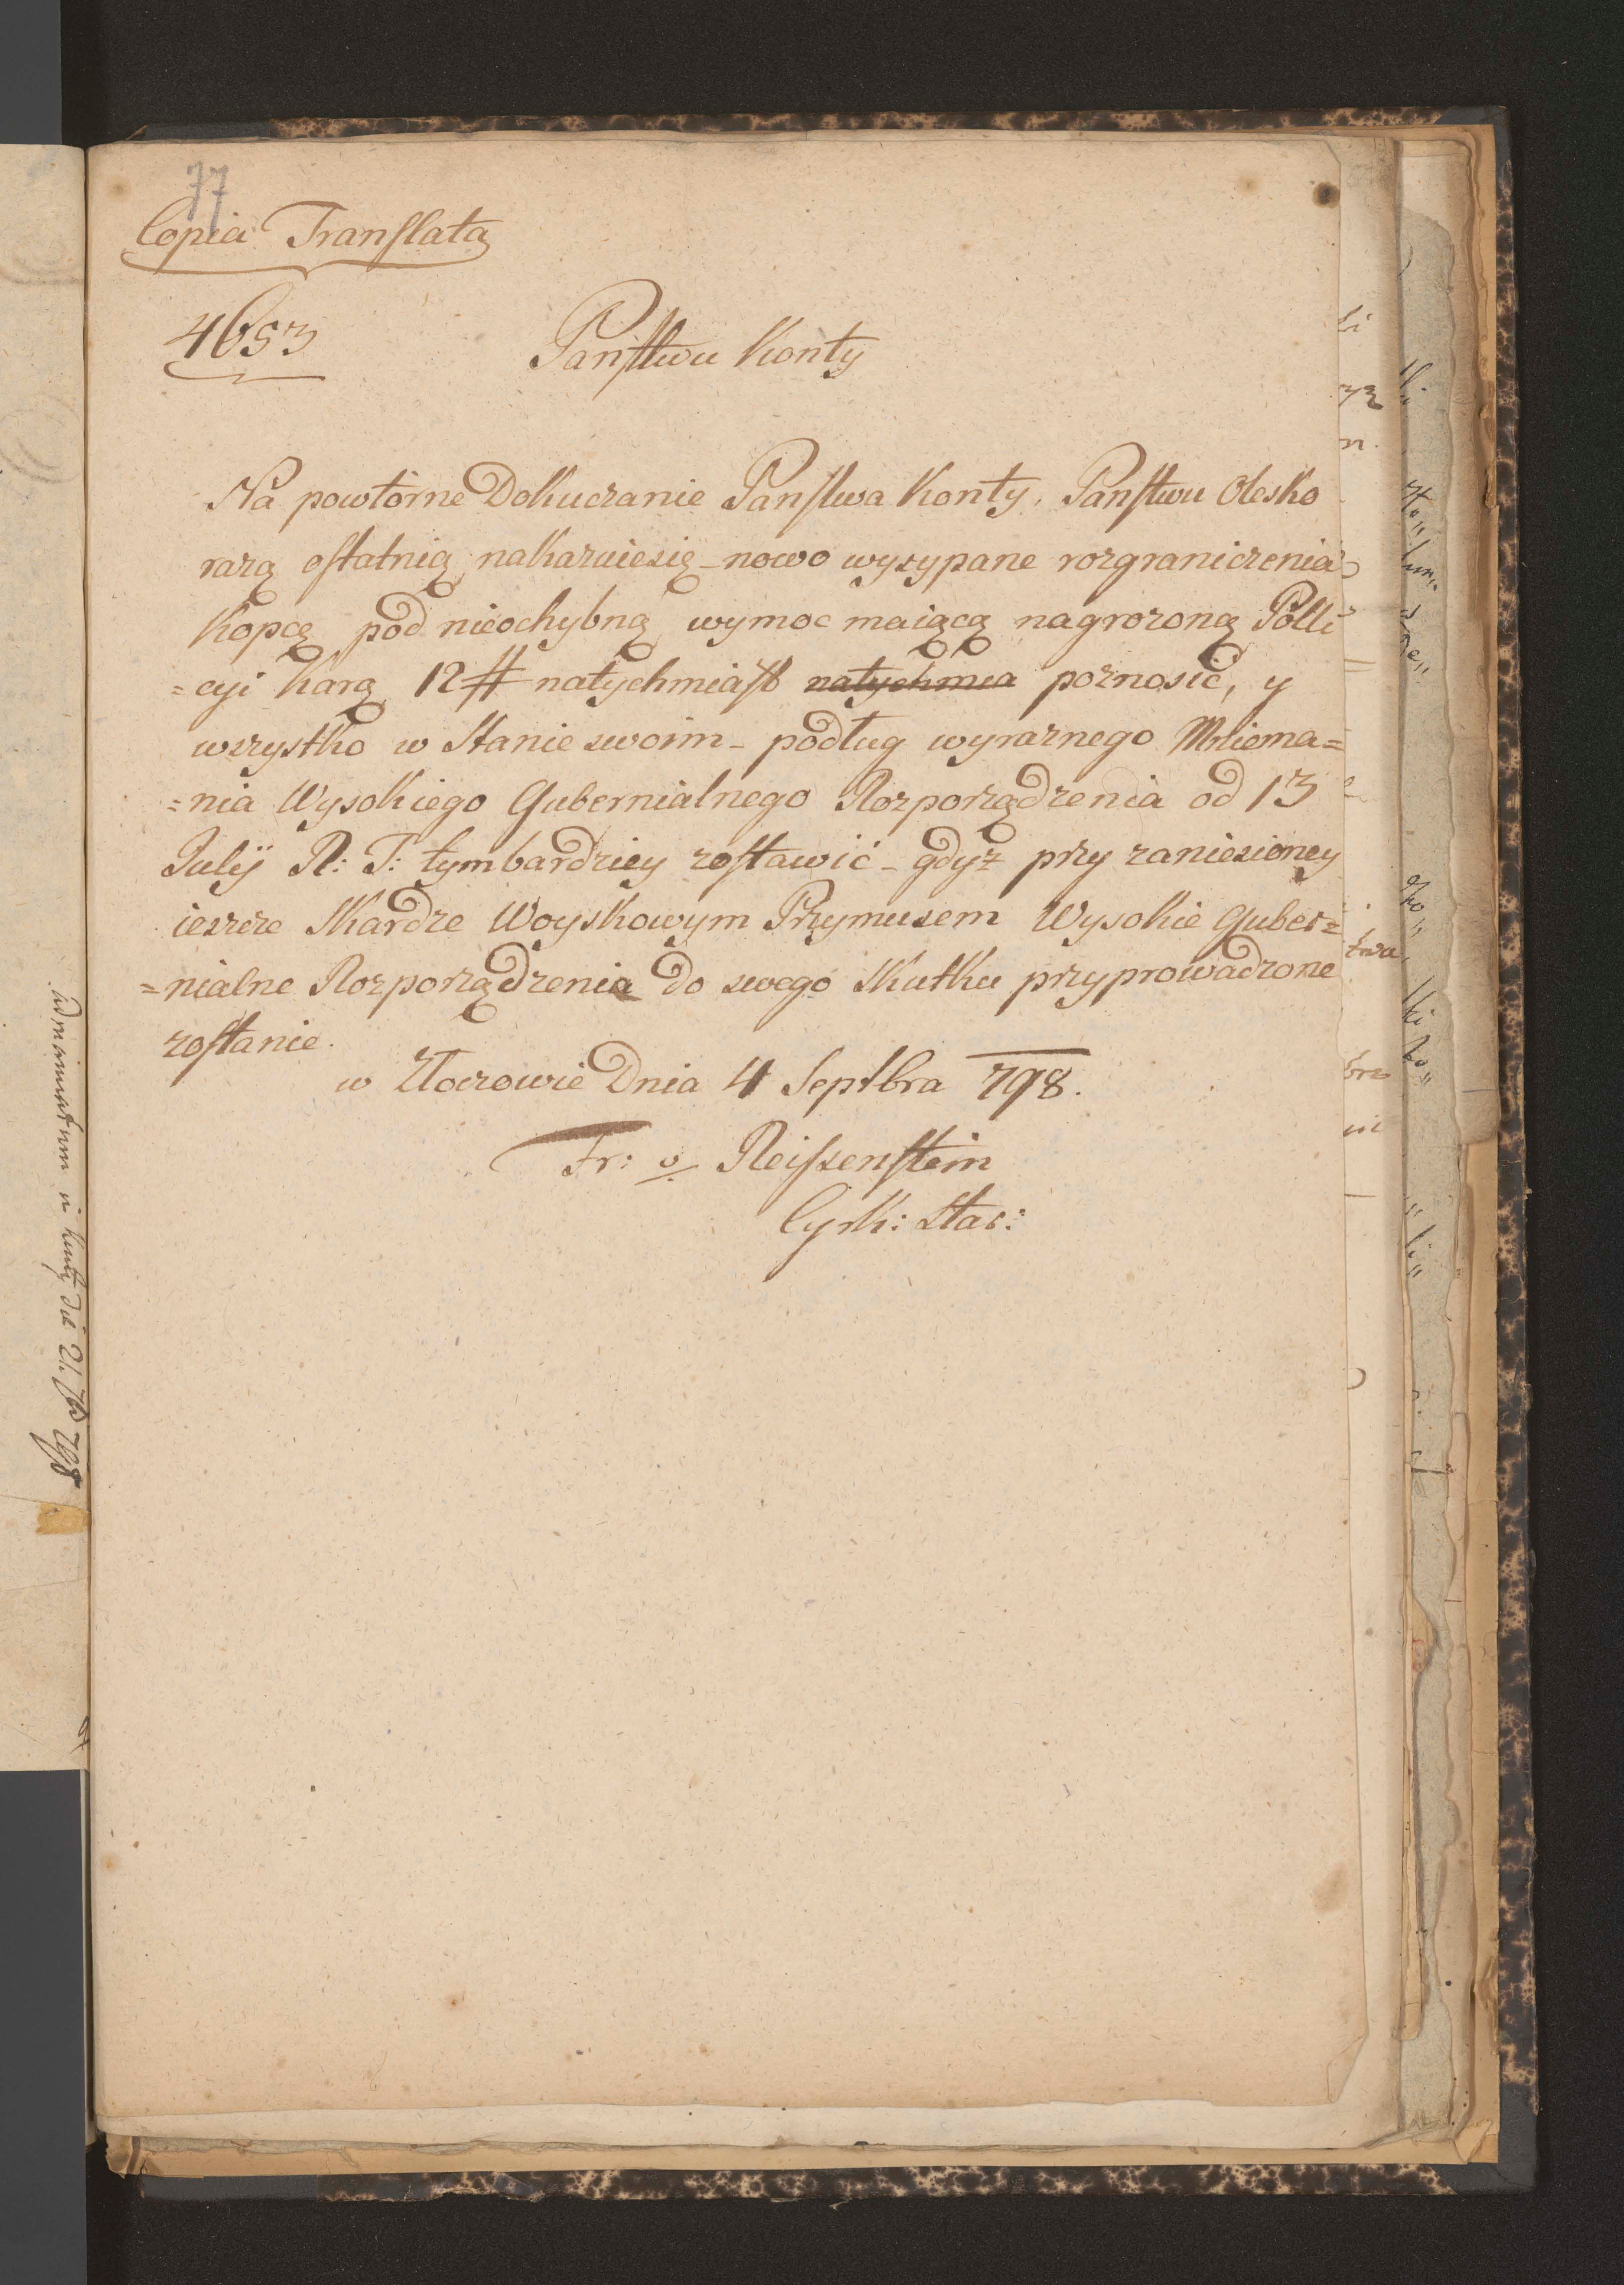 77
Copia Translata
4653
Panstwu Konty
Na powtorne Dokuczanie Panstwa Konty, Panstwu Olesko
razą ostatnią nakazuiesię nowo wysypane rozgraniczenia
Kopcę pod nieochybną wymoc maiącą nagrozoną Polli
=cyi Karą 12 # natychmiast natychmia poznosić, y
wszystko w Stanie swoim - podług wyraznego Mniema=
=nia Wysokiego Gubernialnego Rozporządzenia od 13
Julÿ R: T: tymbardziey zostawić - gdyż przy zaniesioney
ieszcze Skardze Woyskowym Przymusem Wysokie Guber=
=nialne Rozporządzenia do swego Skutku przyprowadzone
zostanie.
w Złoczowie Dnia 4 Septbra 798.
Fr: v Reissenstein
Cyrk: Star: